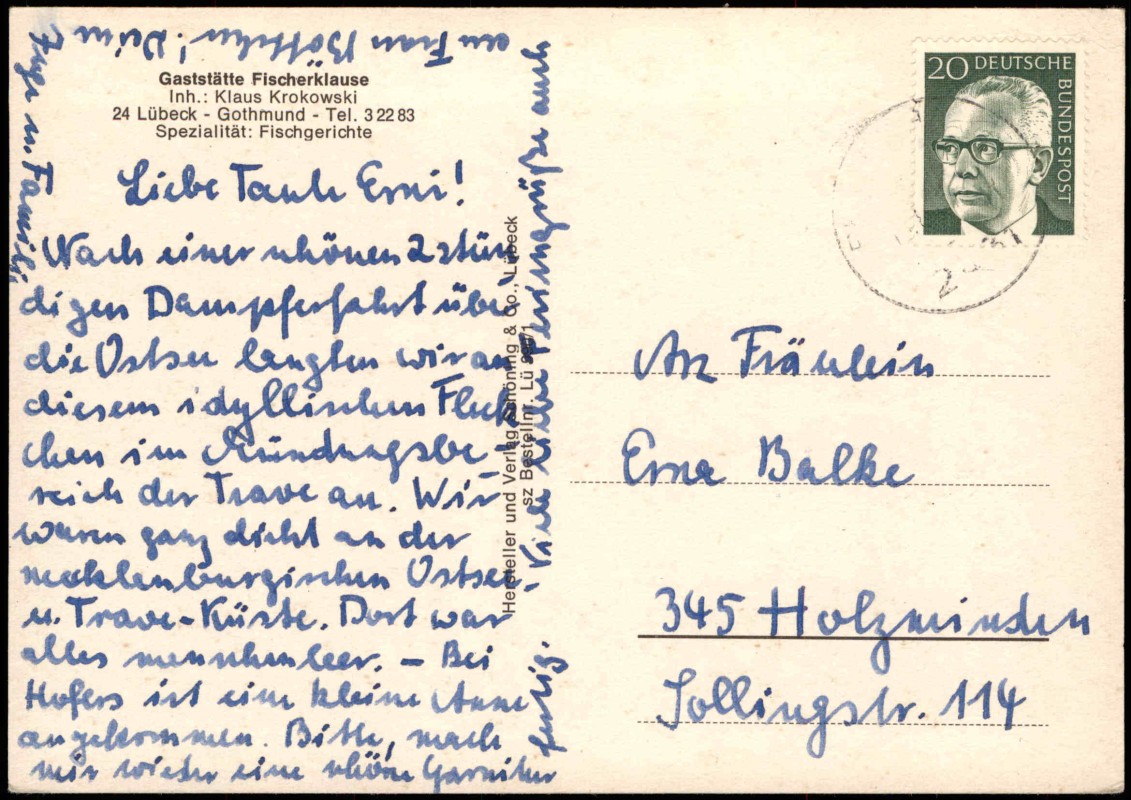 Gaststätte Fischerklause
Inh.: Klaus Krokowski
24 Lübeck - Gothmund - Tel. 3 22 83
Spezialität: Fischgerichte
Liebe Tante Erni!
Nach einer schönen 2 stün
digen Dampferfahrt über
die Ostsee langten wir an
diesem idyllischen Fleck
chen im Mündungsbe-
reich der Trave an. Wir
waren ganz dicht an der
mecklenburgischen Ostsee
u. Trave-Küste. Dort war
alles menschenleer. – Bei
Hofers ist eine kleine Anne
angekommen. Bitte, mach
mir wieder eine schöne Garnitur
fertig.
- Viele liebe Feriengrüße auch
an Frau Böttcher! Deine
Inge u. Familie
Hersteller und Verlag Schöning & Co., Lübeck
sz Bestellnr. Lü
20 DEUTSCHE
BUNDESPOST
An Fräulein
Erna Balke
345 Holzminden
Sollingstr. 114